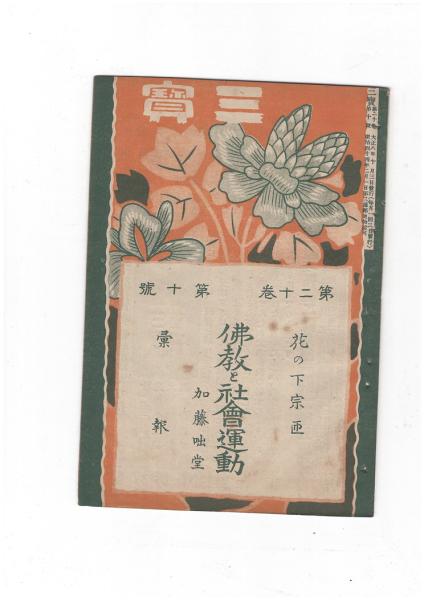 三寶
第二十巻 第十號
花の下宗匠
佛教と社會運動
加藤咄堂
彙報